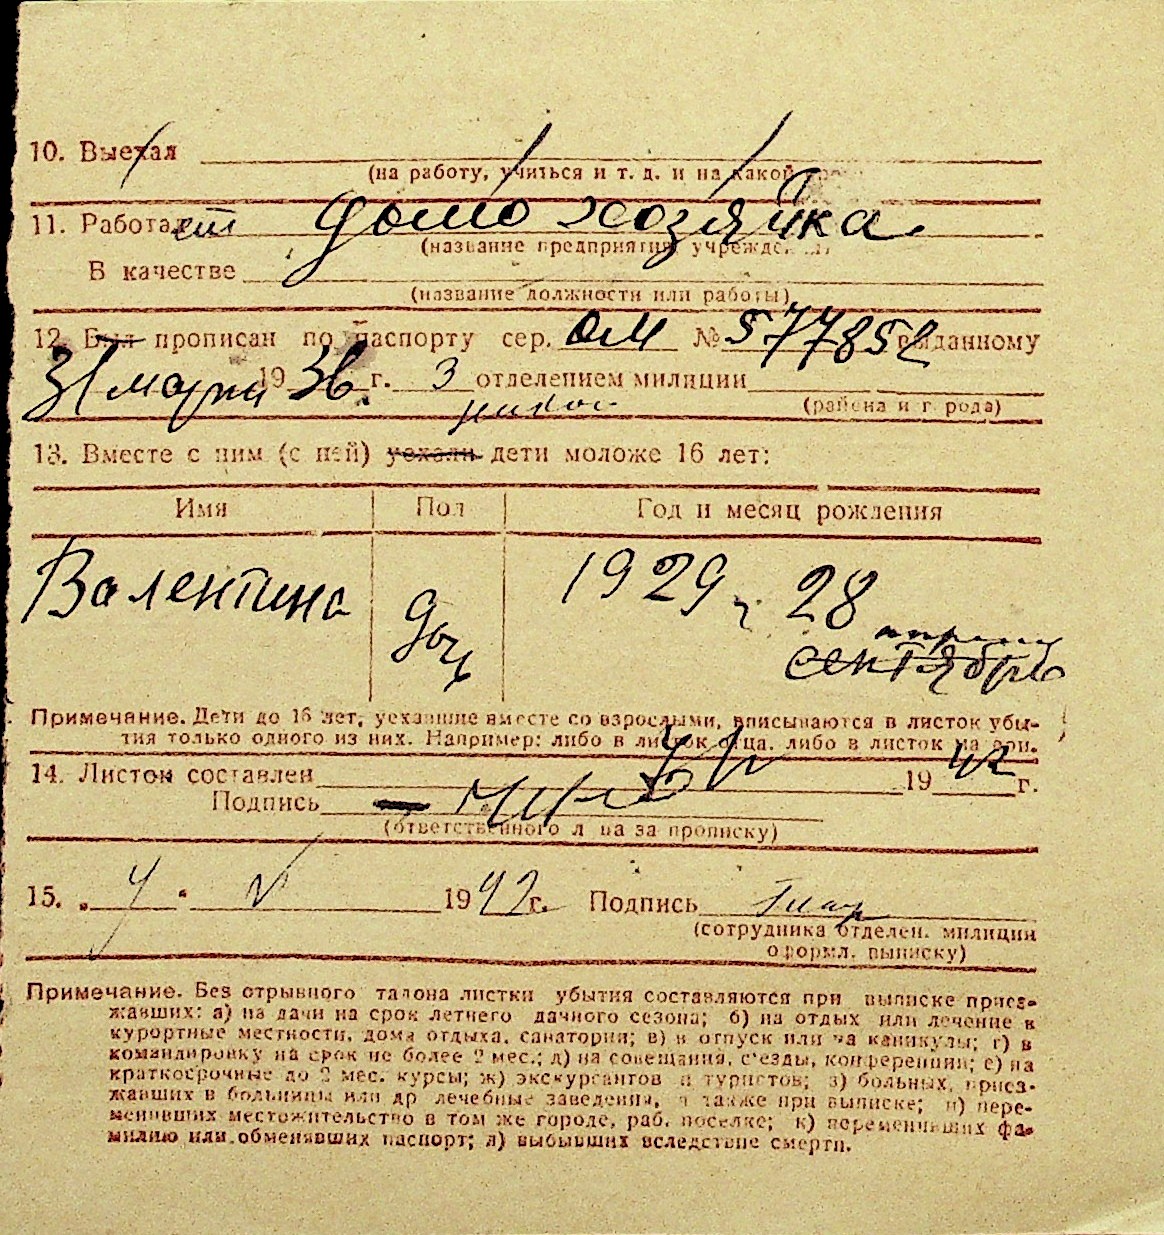 10. Выехал
(на работу, учиться и т. д. и на какой
11. Работает домохозяйка.
(название предприятия, учрежде
В качестве
(название должности или работы)
12. Был прописан по паспорту сер. ОМ № 577852 выданному
31 марта 1936 г. 3 отделением милиции
(района и города)
13. Вместе с ним (с ней) уехали дети моложе 16 лет:
Имя Пол Год и месяц рождения
Валентина доч 1929 г. 28
апреля
сентябрь
Примечание. Дети до 16 лет, уехавшие вместе со взрослыми, вписываются в листок убы-
тия только одного из них. Например: либо в листок отца, либо в листок матери.
14. Листок составлен 4/V 1942 г.
Подпись
(ответственного лица за прописку)
15. „4" V 1942 г. Подпись
(сотрудника отделен. милиции
оформл. выписку)
Примечание. Без отрывного талона листки убытия составляются при выписке приез-
жавших: а) на дачи на срок летнего дачного сезона; б) на отдых или лечение в
курортные местности, дома отдыха, санатории; в) в отпуск или на каникулы; г) в
командировку на срок не более 2 мес.; д) на совещания, съезды, конференции; е) на
краткосрочные до 2 мес. курсы; ж) экскурсантов и туристов; з) больных, приез-
жавших в больницы или др лечебные заведения, а также при выписке; и) пере-
менивших местожительство в том же городе, раб. поселке; к) переменивших фа-
милию или обменявших паспорт; л) выбывших вследствие смерти.